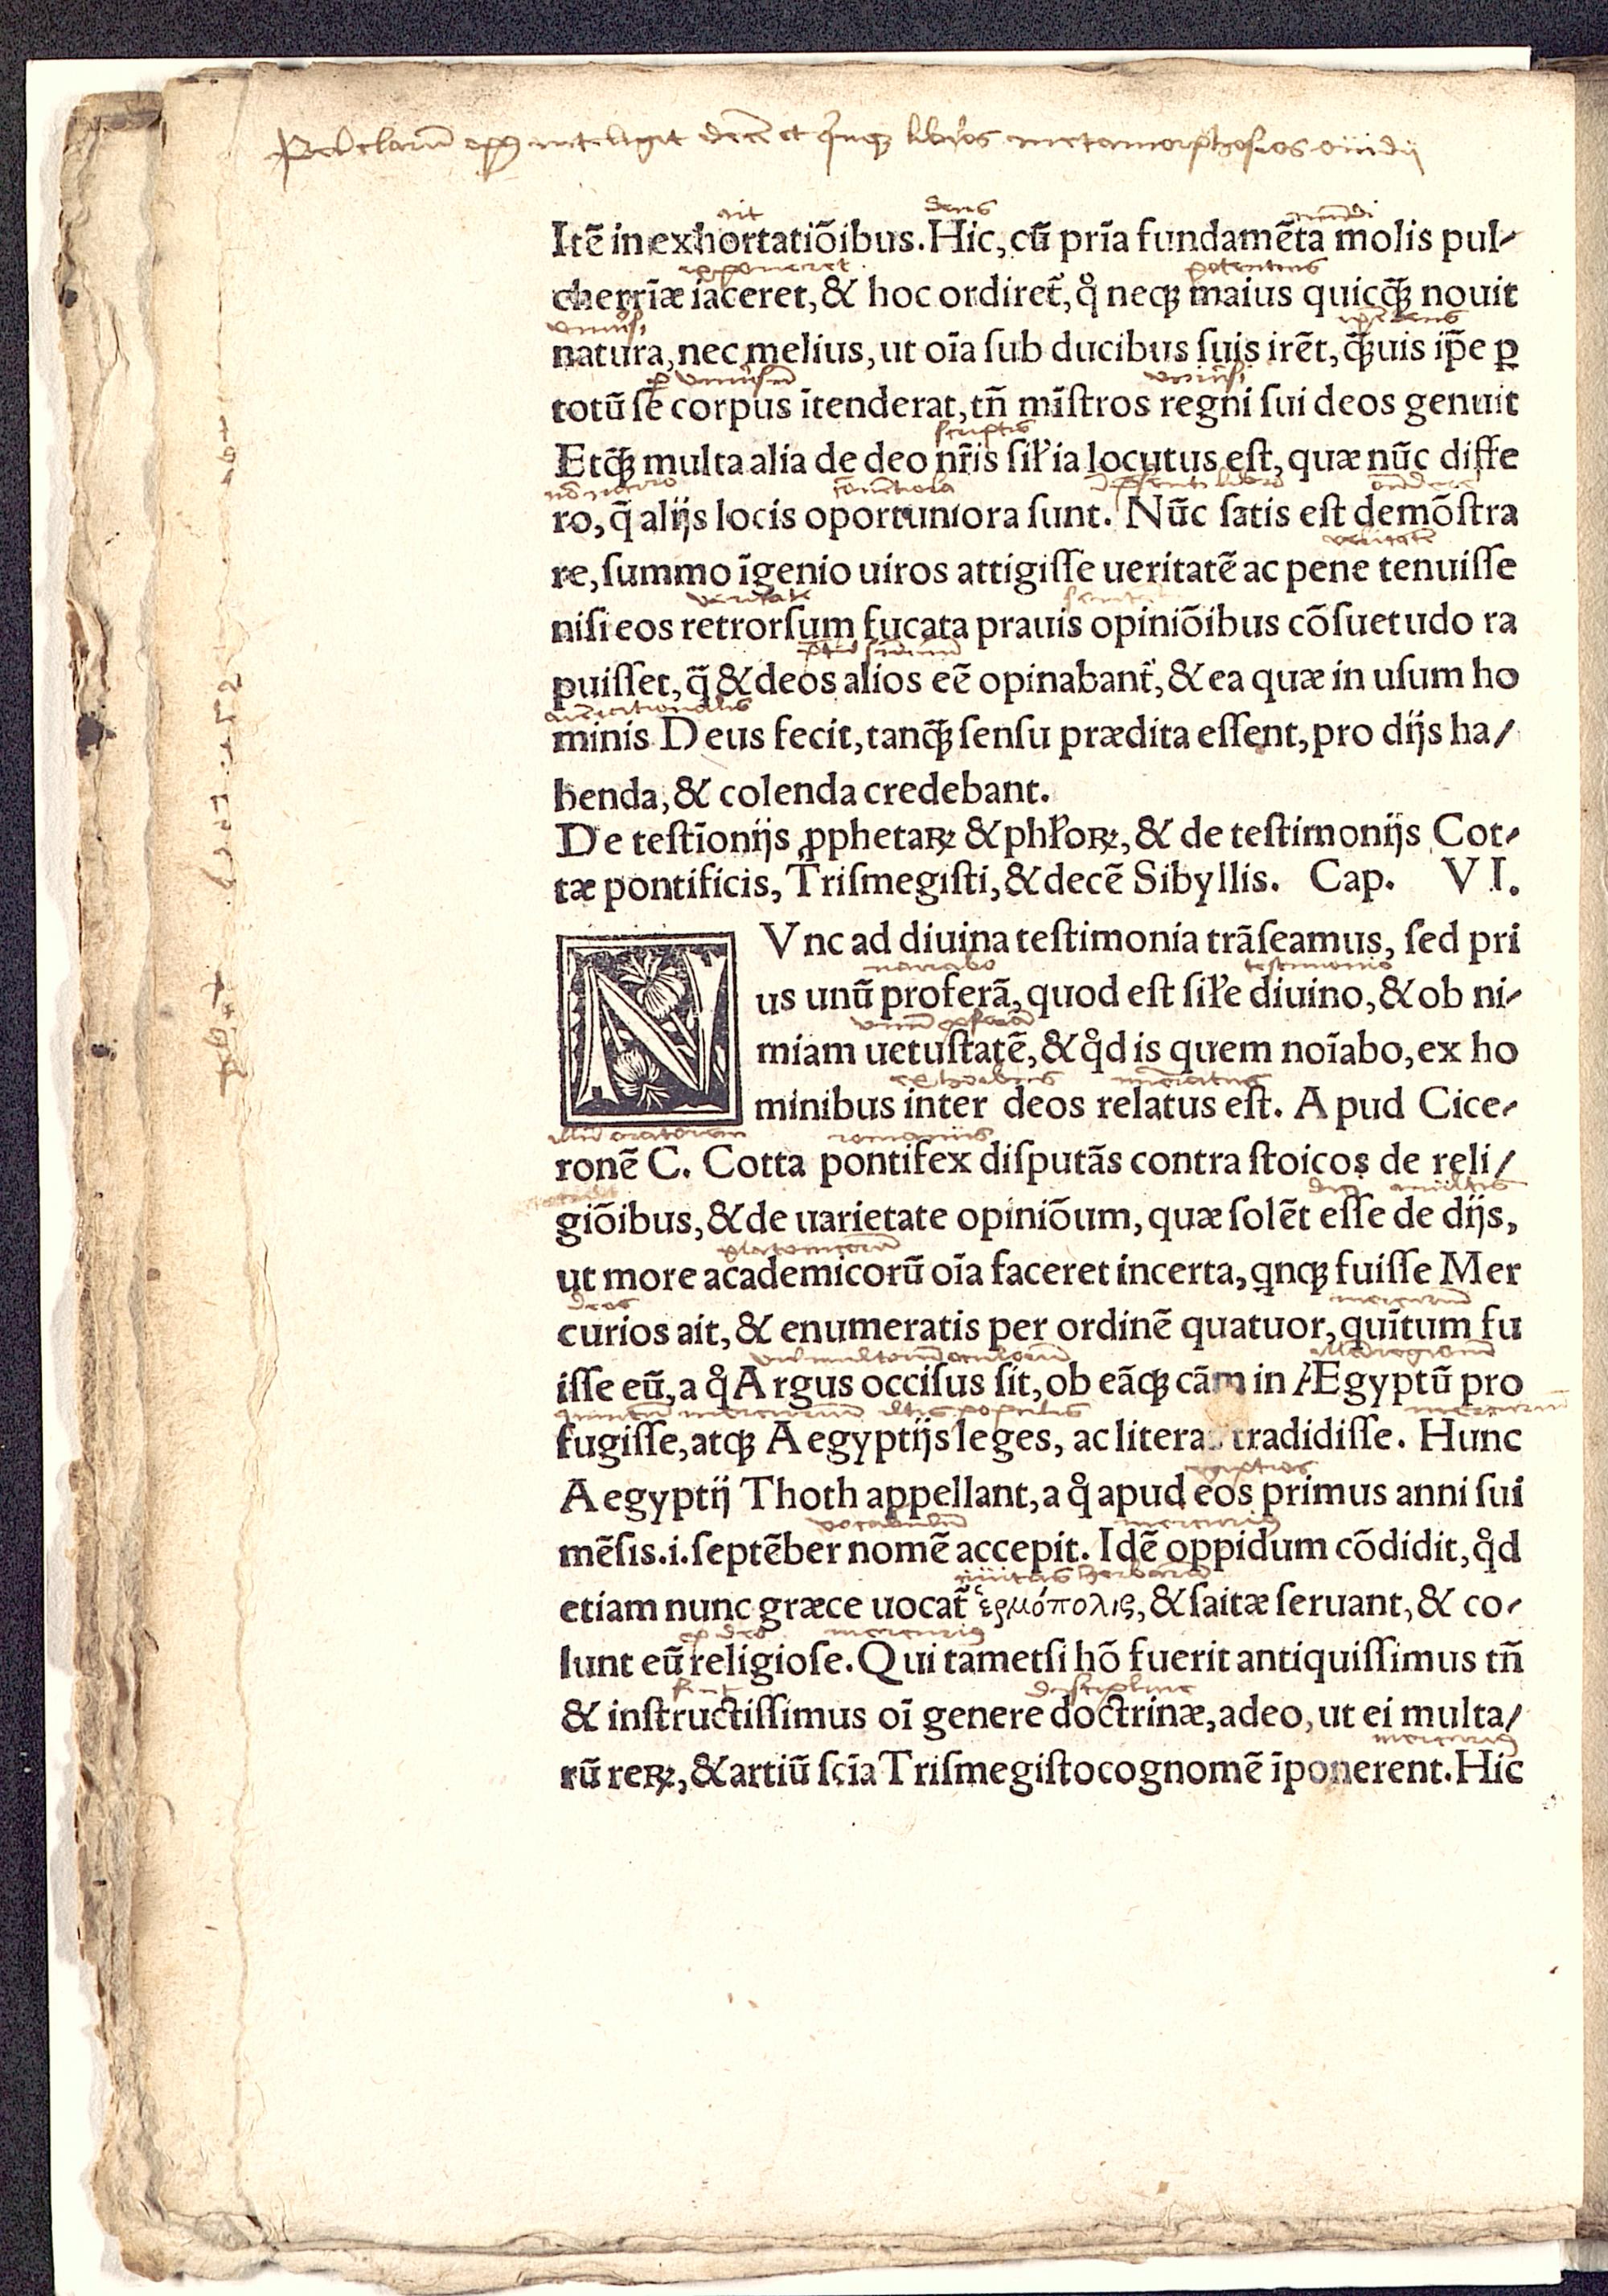 intelligit decē et quinq; libros metamorphosios ouidij
ait deus mūdi
Itē in exhortatiōibus. Hic, cū prīa fundamēta molis pul-
apponeret potentius
cherrīæ iaceret, & hoc ordiret̃, qͦ neq; maius quicq̃; nouit
natura, nec melius, ut oīa sub ducibus suis irēt, q̃;uis ip̄e ꝑ
totū se corpus ītenderat, tñ mīstros regni sui deos genuit
scriptis
Etq̃; multa alia de deo nr̃is siłia locutus est, quæ nūc diffe
ro, q̃ alijs locis oportuniora sunt. Nūc satis est demōstra
veritatē
re, summo īgenio uiros attigisse ueritatē ac pene tenuisse
veritate
nisi eos retrorsum fucata prauis opiniōibus cōsuetudo ra
puisset, q̃ & deos alios eē opinabant̃, & ea quæ in usum ho
minis Deus fecit, tanq̃; sensu prædita essent, pro dijs ha/
benda, & colenda credebant.
De testīonijs ꝓphetaꝝ & phłoꝝ, & de testimonijs Cot-
tæ pontificis, Trismegisti, & decē Sibyllis. Cap. VI.
NVnc ad diuina testimonia trāseamus, sed pri
narrabo testimonio
us unū proferā, quod est siłe diuino, & ob ni-
miam uetustatē, & qͦd is quem noīabo, ex ho
minibus inter deos relatus est. Apud Cice-
illū oratorem romanus
ronē C. Cotta pontifex disputās contra stoicos de reli/
giōibus, & de uarietate opiniōum, quæ solēt esse de dijs,
platonicorū
ut more academicorū oīa faceret incerta, qnq; fuisse Mer
deos mercurium
curios ait, & enumeratis per ordinē quatuor, quītum fu
illā regionē
isse eū, a qͦ Argus occisus sit, ob eāq; cām in Ægyptū pro
quintū mercurium illis populis mercurium
fugisse, atq; Aegyptijs leges, ac litera tradidisse. Hunc
egiptios
Aegyptij Thoth appellant, a qͦ apud eos primus anni sui
vocabulū mercurius
mēsis .i. septēber nomē accepit. Idē oppidum cōdidit, qͦd
etiam nunc græce uocat̃ ἑρμόπολις, & saitæ seruant, & co-
deo mercurius
lunt eū religiose. Qui tametsi hō fuerit antiquissimus tñ
fuit discipline
& instructissimus oī genere doctrinæ, adeo, ut ei multa/
mercurius
rū reꝝ, & artiū scīa Trismegisto cognomē īponerent. Hic